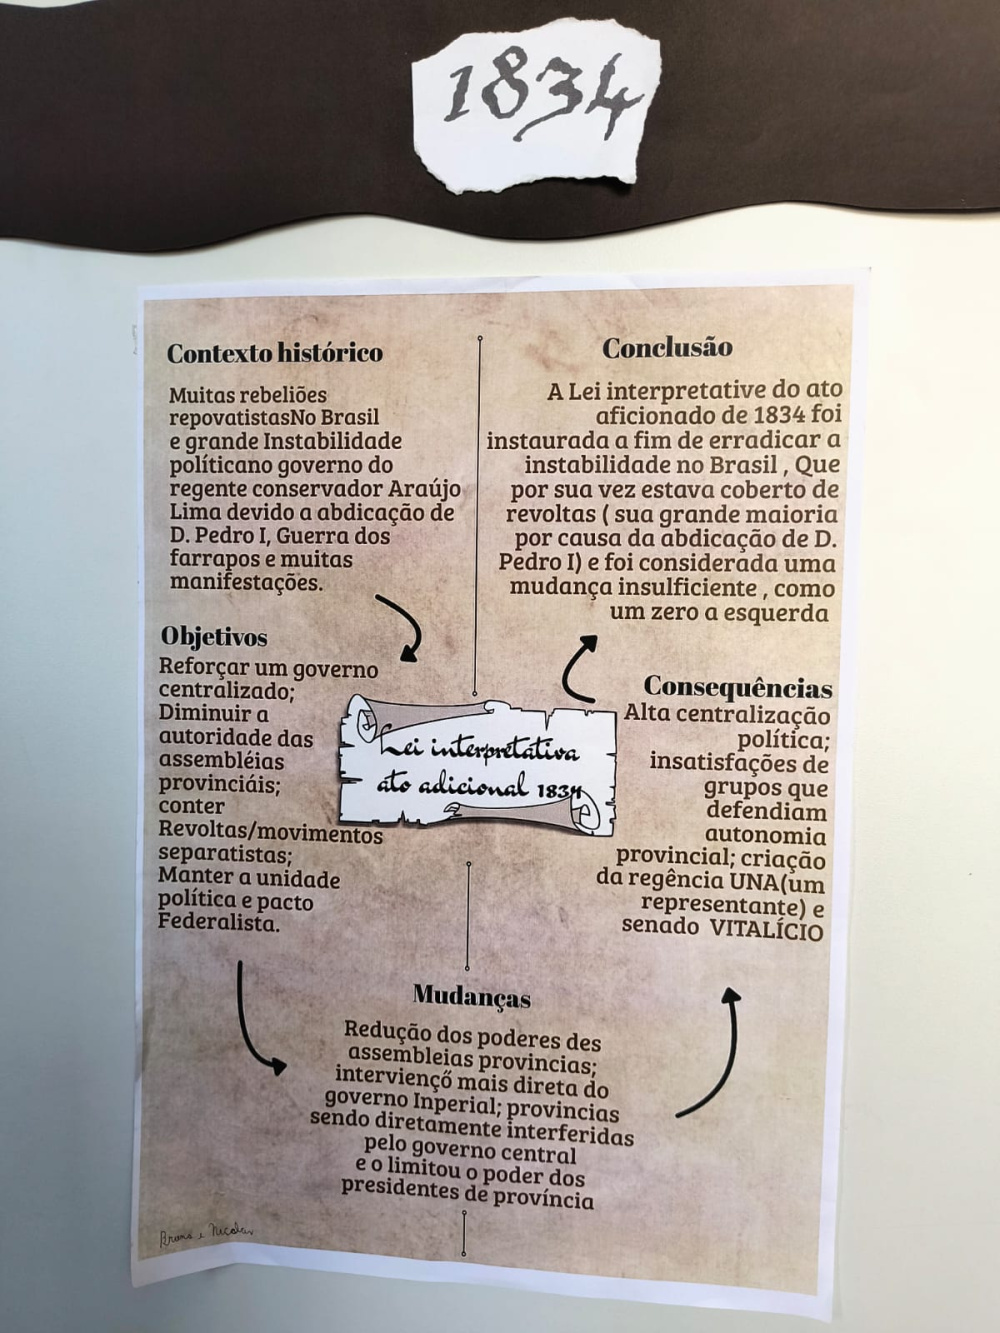 1834
Contexto histórico
Muitas rebeliões
repovatistasNo Brasil
e grande Instabilidade
políticano governo do
regente conservador Araújo
Lima devido a abdicação de
D. Pedro I, Guerra dos
farrapos e muitas
manifestações.
Objetivos
Reforçar um governo
centralizado;
Diminuir a
autoridade das
assembléias
provinciáis;
conter
Revoltas/movimentos
separatistas;
Manter a unidade
política e pacto
Federalista.
Lei interpretativa
ato adicional 1834
Mudanças
Redução dos poderes des
assembleias provincias;
interviençõ mais direta do
governo Inperial; provincias
sendo diretamente interferidas
pelo governo central
e o limitou o poder dos
presidentes de província
Consequências
Alta centralização
política;
insatisfações de
grupos que
defendiam
autonomia
provincial; criação
da regência UNA(um
representante) e
senado VITALÍCIO
Conclusão
A Lei interpretative do ato
aficionado de 1834 foi
instaurada a fim de erradicar a
instabilidade no Brasil , Que
por sua vez estava coberto de
revoltas ( sua grande maioria
por causa da abdicação de D.
Pedro I) e foi considerada uma
mudança insuficiente , como
um zero a esquerda